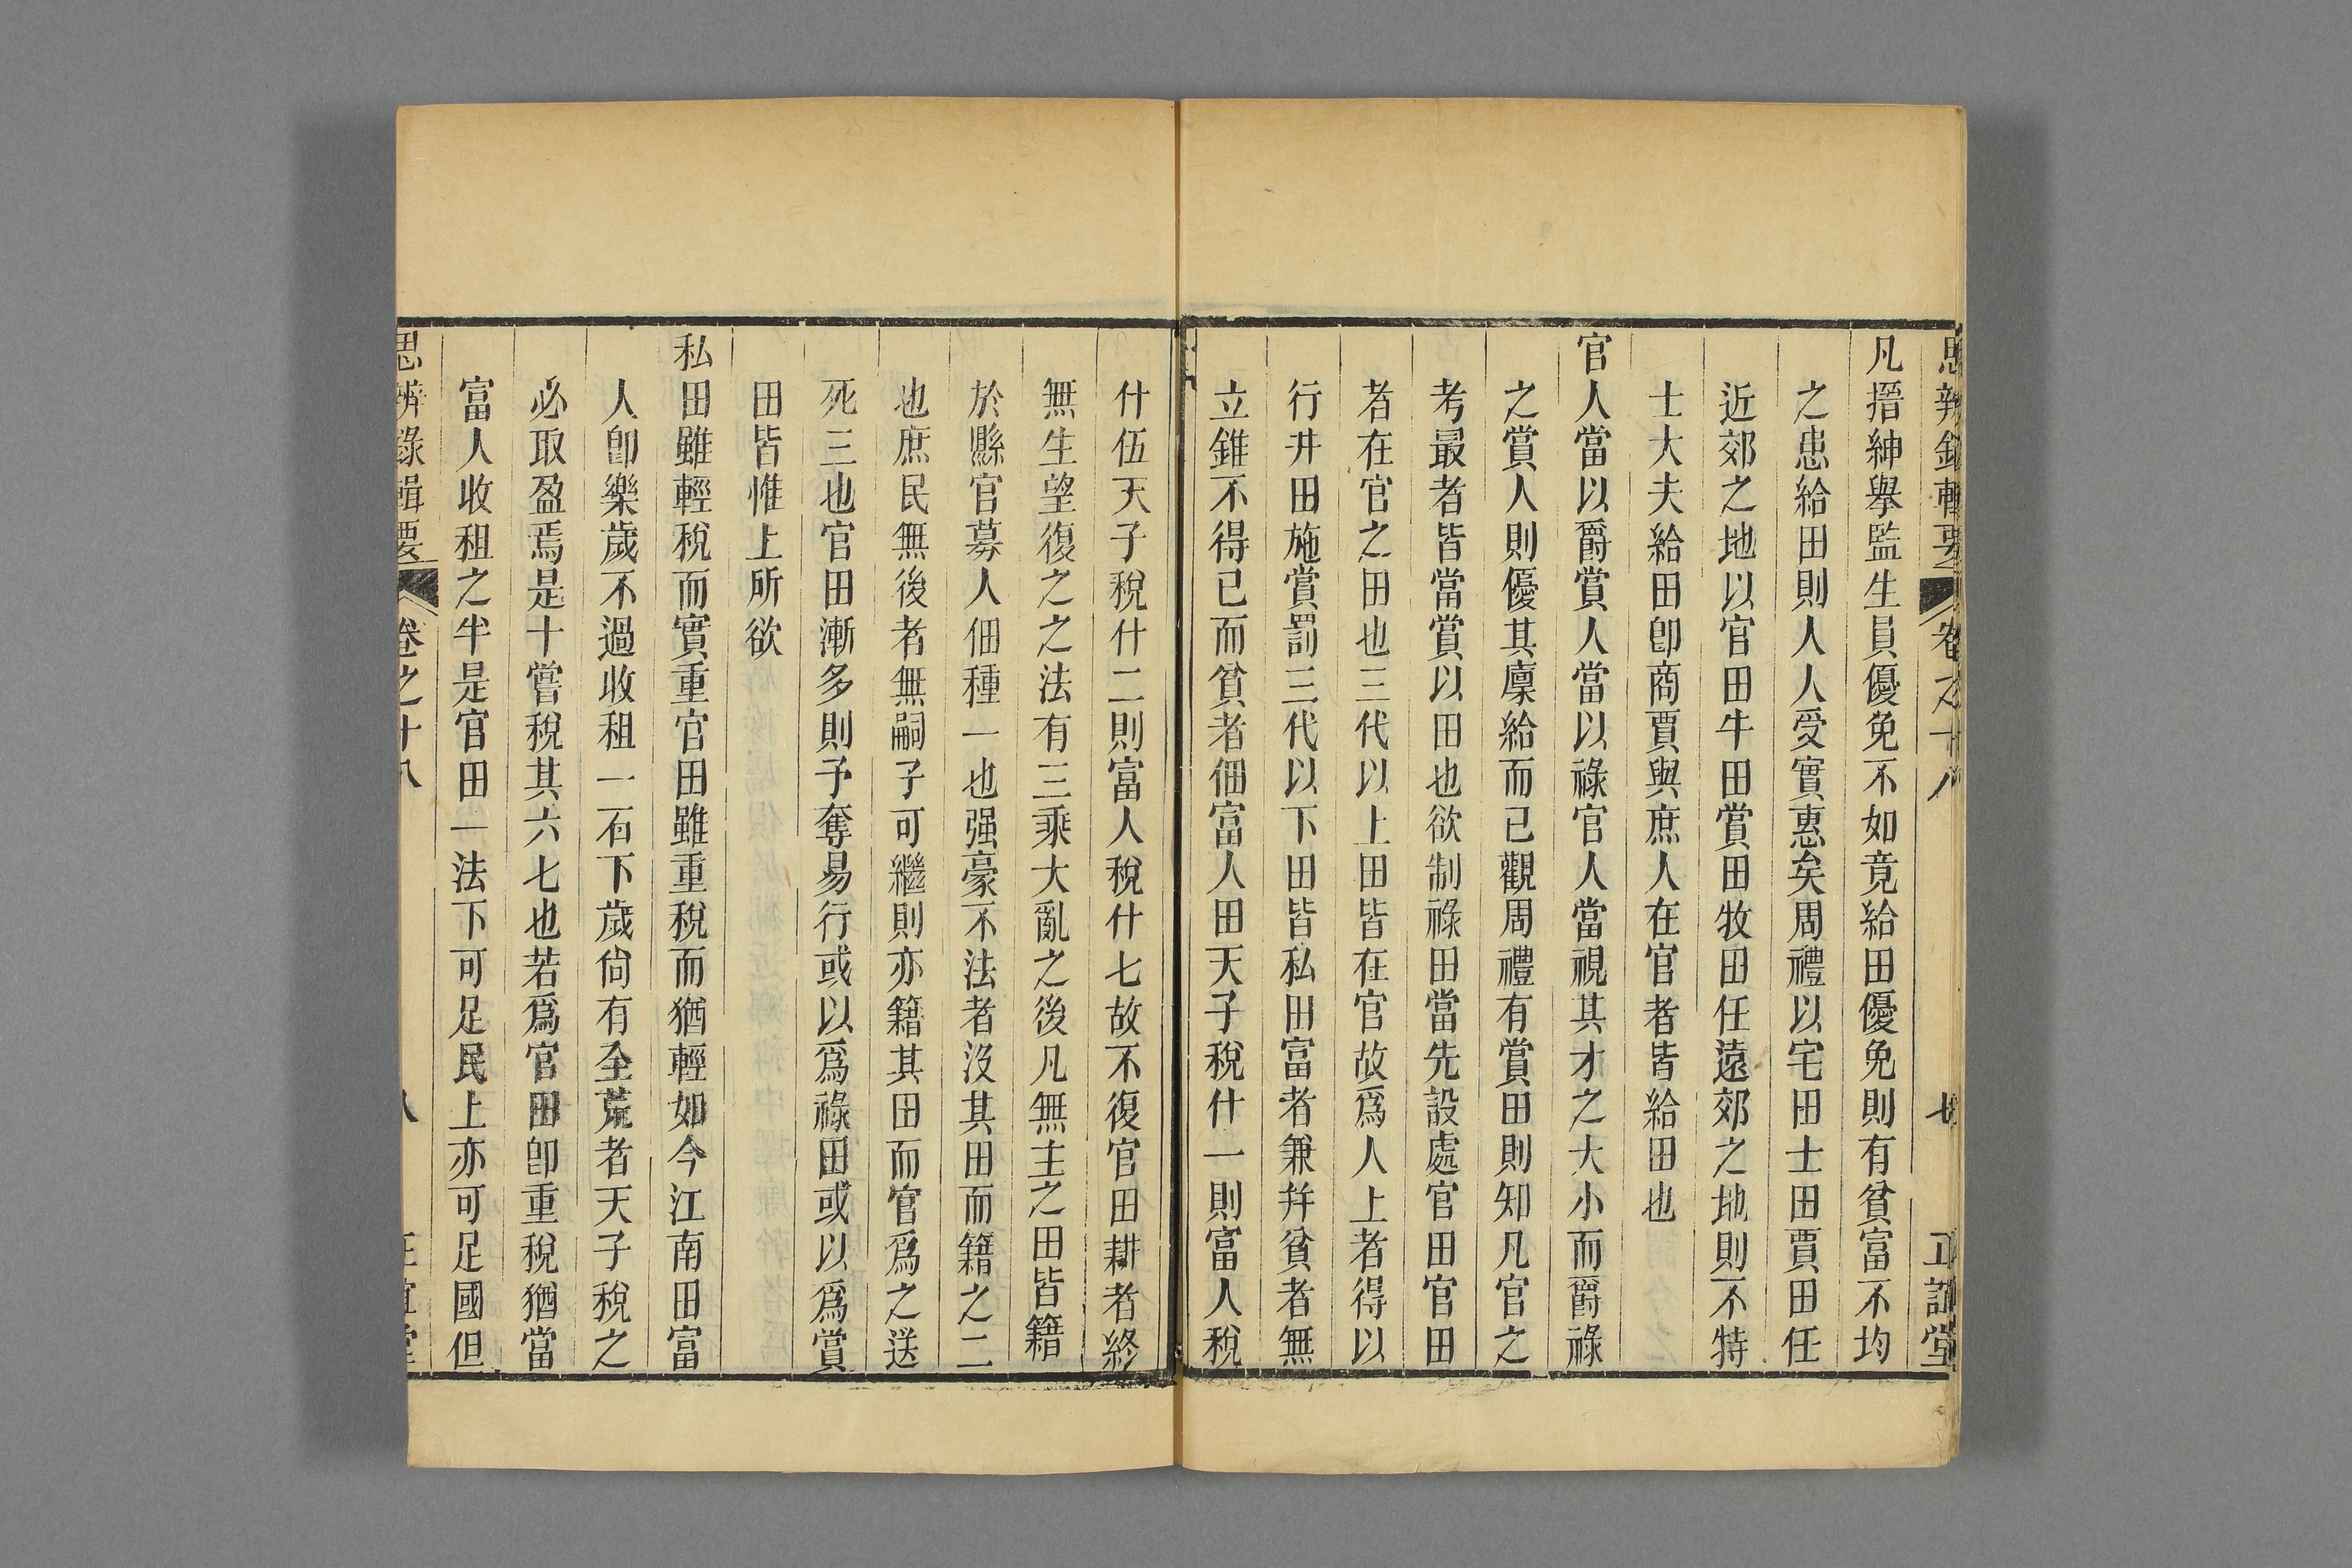 思辨錄輯要 卷之十八 七 正誼堂
凡搢紳舉監生員優免不如竟給田優免則有貧富不均
之患給田則人人受實惠矣周禮以宅田士田賈田任
近郊之地以官田牛田賞田牧田任遠郊之地則不特
士大夫給田卽商賈與庶人在官者皆給田也
官人當以爵賞人當以祿官人當視其才之大小而爵祿
之賞人則優其廪給而已觀周禮有賞田則知凡官之
考最者皆當賞以田也欲制祿田當先設處官田官田
者在官之田也三代以上田皆在官故爲人上者得以
行井田施賞罰三代以下田皆私田富者兼并貧者無
立錐不得已而貧者佃富人田天子稅什一則富人稅
什伍天子稅什二則富人稅什七故不復官田耕者終
無生望復之之法有三乘大亂之後凡無主之田皆籍
於縣官募人佃種一也强豪不法者沒其田而籍之二
也庶民無後者無嗣子可繼則亦籍其田而官爲之送
死三也官田漸多則予奪易行或以爲祿田或以爲賞
田皆惟上所欲
私田雖輕稅而實重官田雖重稅而猶輕如今江南田富
人卽樂歲不過收租一石下歲尙有全荒者天子稅之
必取盈焉是十嘗稅其六七也若爲官田卽重稅猶當
富人收租之半是官田一法下可足民上亦可足國但
思辨錄輯要 卷之十八 八 正誼堂